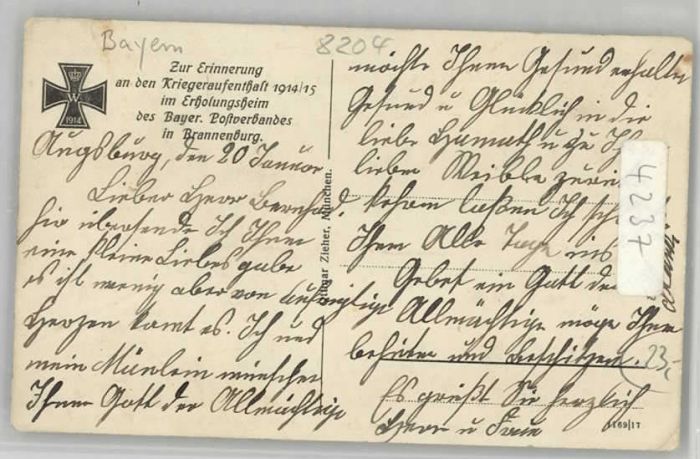 Bayern
8204
W
1914
Zur Erinnerung
an den Kriegeraufenthalt 1914/15
im Erholungsheim
des Bayer. Postverbandes
in Brannenburg.
Augsburg, den 20 Januar
Lieber Herr Bernhard,
hir übersende Ich Ihnen
eine kleine Liebesgabe
es ist wenig aber von aufrigtige
Herzen komt es. Ich und
mein Mänlein wünschen
Ihnen Gott der Allmächtige
Ottmar Zieher, München.
möchte Ihnen Gesund erhalten
Gesund u Glücklich in die
liebe Heimath u zu
lieben Weible
kehren laßen Ich
Ihen Alle Tage
Gebet ein Gott der
Allmächtige möge Ihnen
behüten und beschützen.
Es grüßt Sie herzlich
Herr u Frau
4237
23,-
1169/17